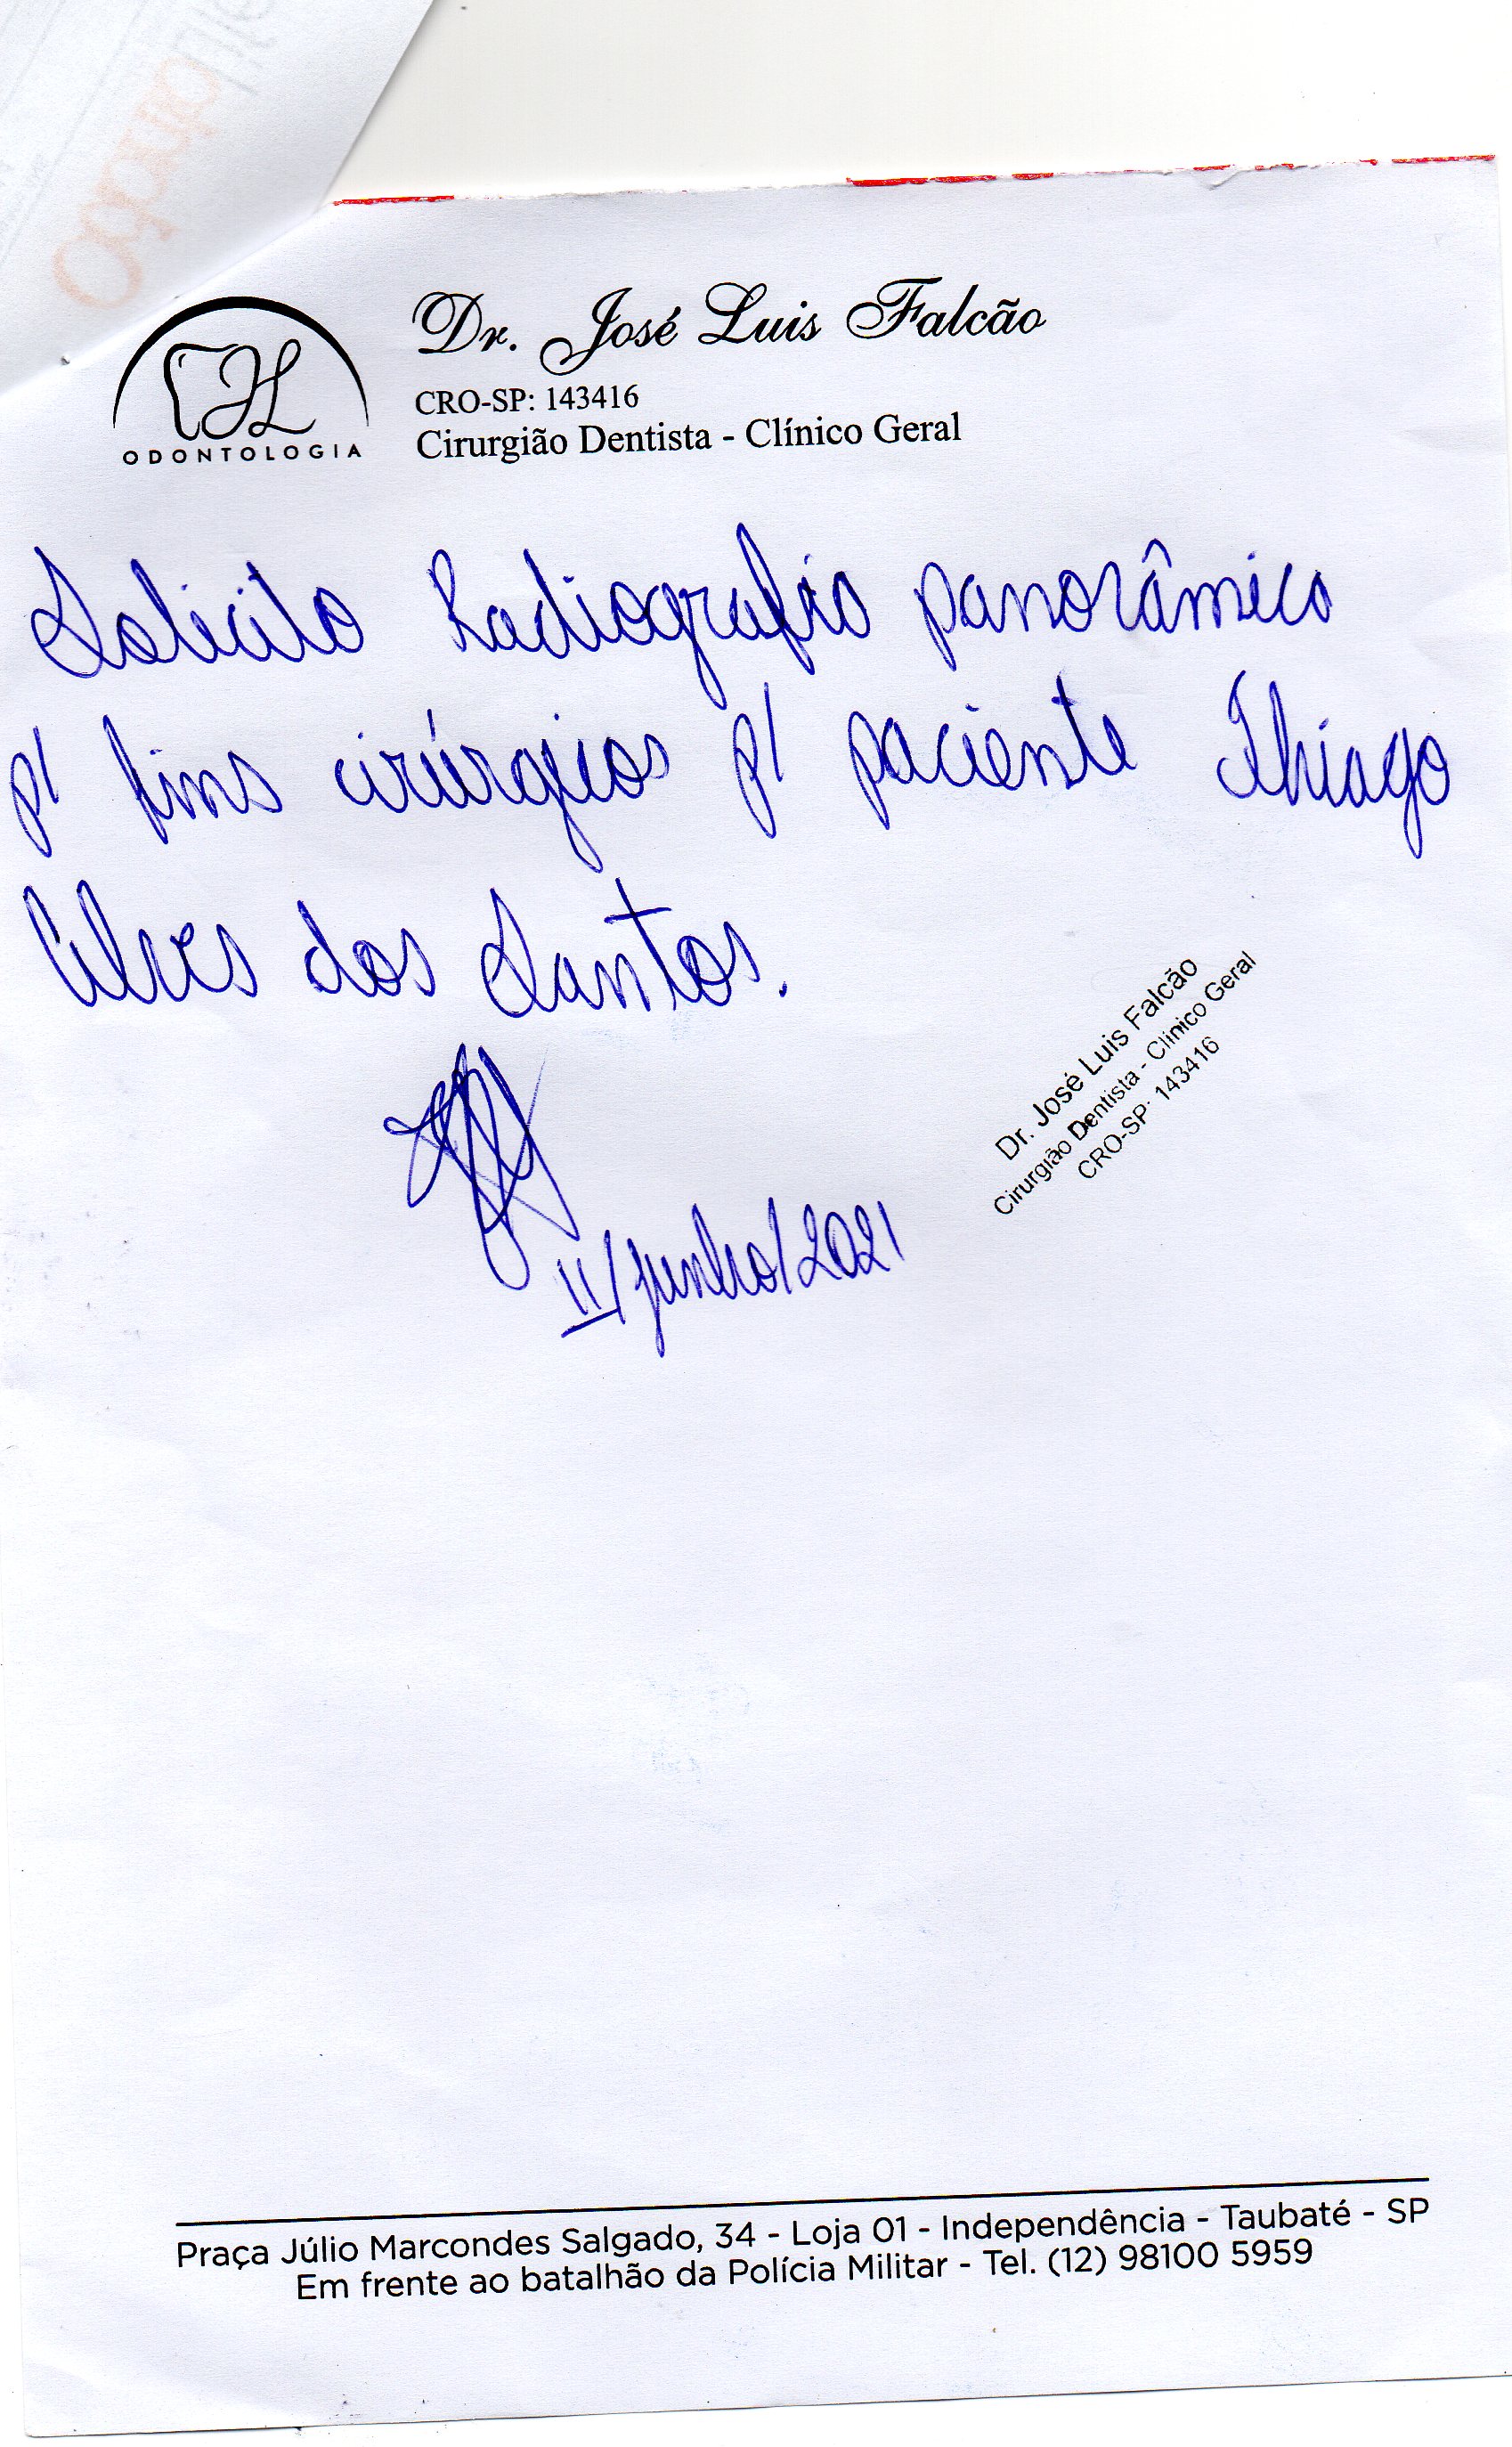 Dr. José Luis Falcão
CRO-SP: 143416
Cirurgião Dentista - Clínico Geral
JL
ODONTOLOGIA
Solicito Radiografia panorâmica
p/ fins cirúrgicos p/ paciente Thiago
Alves dos Santos.
Dr. José Luis Falcão
Cirurgião Dentista - Clínico Geral
CRO-SP: 143416
11/junho/2021
Praça Júlio Marcondes Salgado, 34 - Loja 01 - Independência - Taubaté - SP
Em frente ao batalhão da Polícia Militar - Tel. (12) 98100 5959